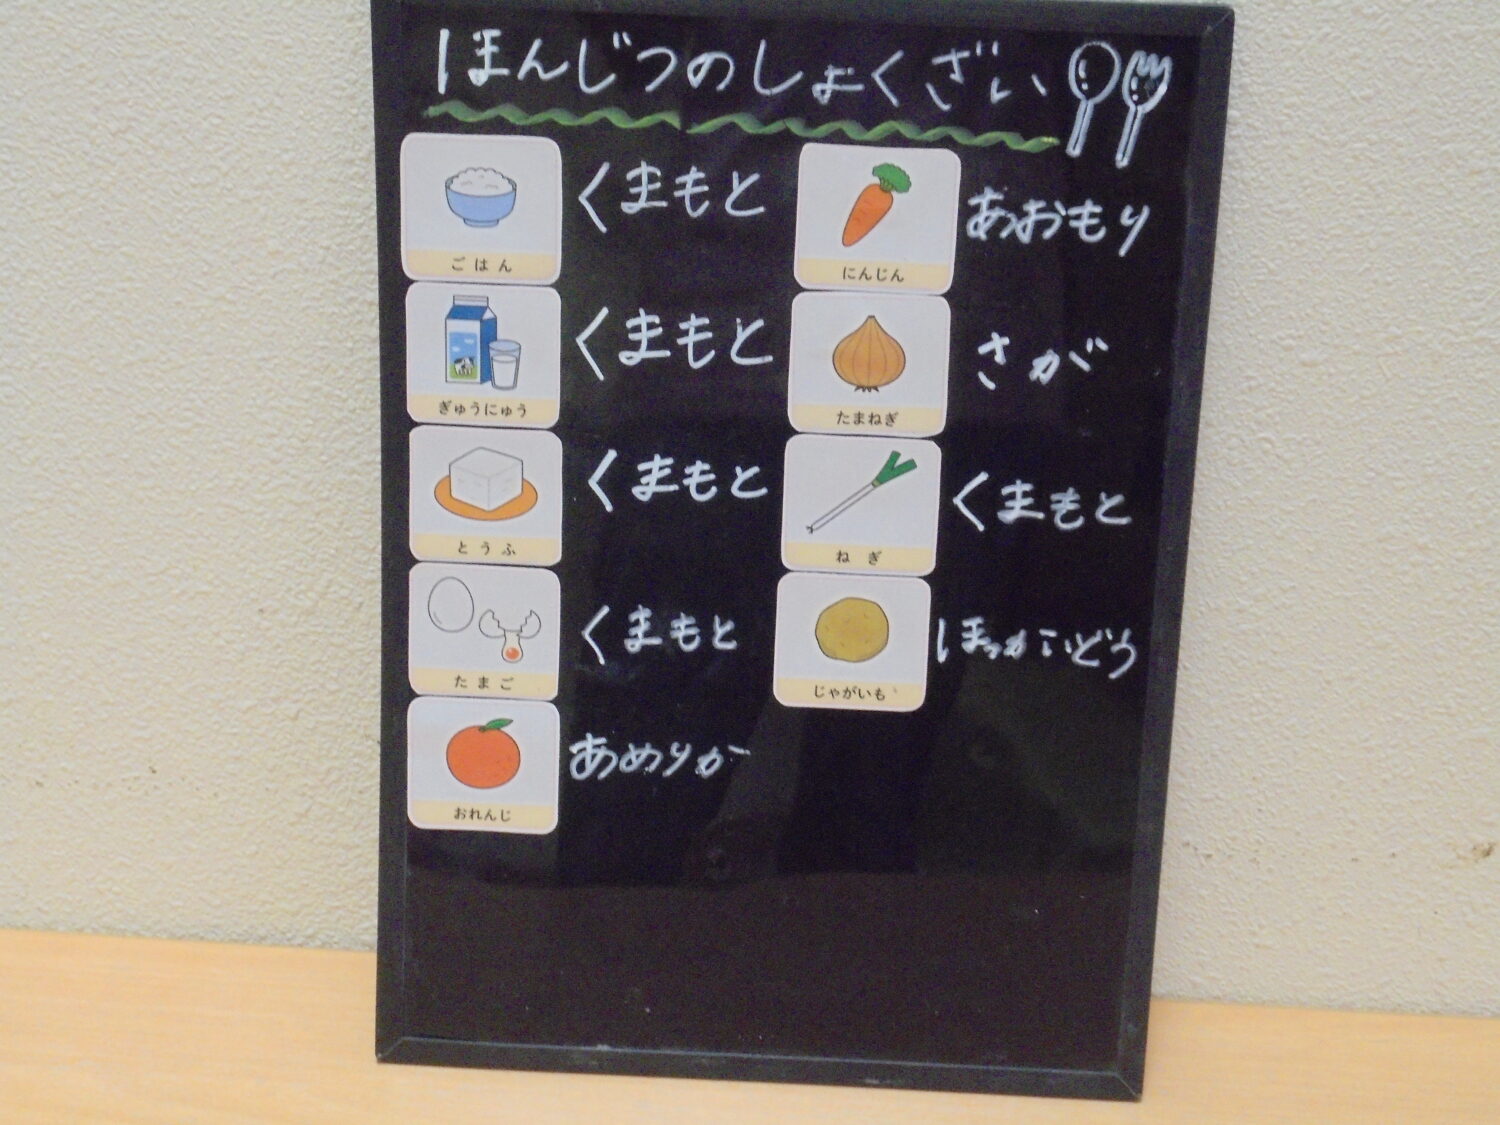 ほんじつのしょくざい
ごはん
くまもと
ぎゅうにゅう
くまもと
とうふ
くまもと
たまご
くまもと
おれんじ
あめりか
にんじん
あおもり
たまねぎ
さが
ねぎ
くまもと
じゃがいも
ほっかいどう